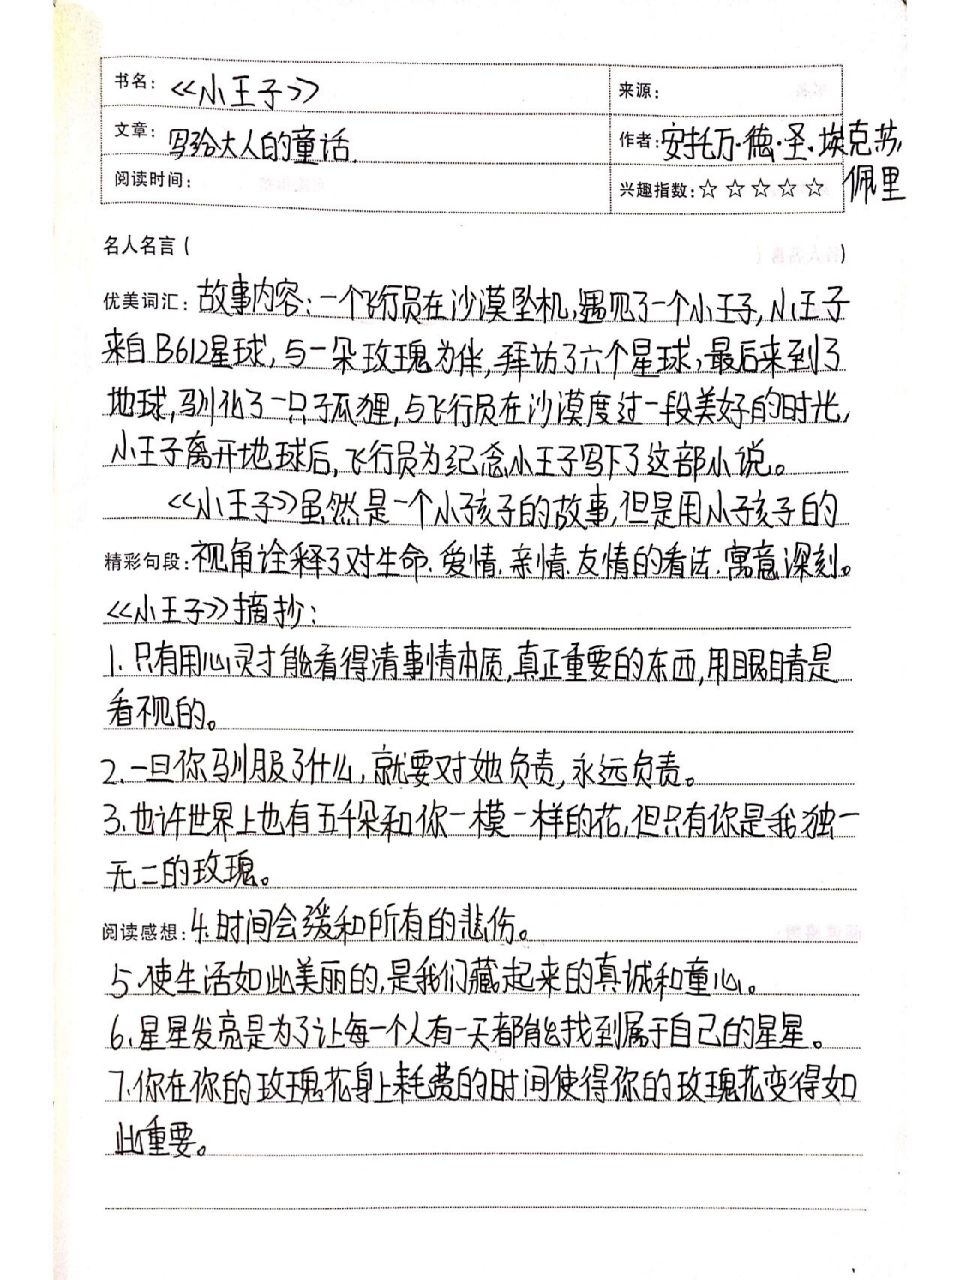 书名: 《小王子》
来源:
文章: 写给大人的童话.
作者: 安托万·德·圣·埃克苏
佩里
阅读时间:
兴趣指数:☆☆☆☆☆
名人名言( )
优美词汇: 故事内容:一个飞行员在沙漠坠机,遇见了一个小王子,小王子
来自B612星球,与一朵玫瑰为伴,拜访了六个星球,最后来到了
地球,驯化了一只子狐狸,与飞行员在沙漠度过一段美好的时光,
小王子离开地球后,飞行员为纪念小王子写下了这部小说。
《小王子》虽然是一个小孩子的故事,但是用小孩子的
精彩句段: 视角诠释了对生命.爱情.亲情.友情的看法.寓意深刻。
《小王子》摘抄:
1.只有用心灵才能看得清事情本质,真正重要的东西,用眼睛是
看不见的。
2.一旦你驯服了什么,就要对她负责,永远负责。
3.也许世界上也有五千朵和你一模一样的花,但只有你是我独一
无二的玫瑰。
阅读感想: 4.时间会缓和所有的悲伤。
5.使生活如此美丽的,是我们藏起来的真诚和童心。
6.星星发亮是为了让每一个人有一天都能找到属于自己的星星。
7.你在你的玫瑰花身上耗费的时间使得你的玫瑰花变得如
此重要。